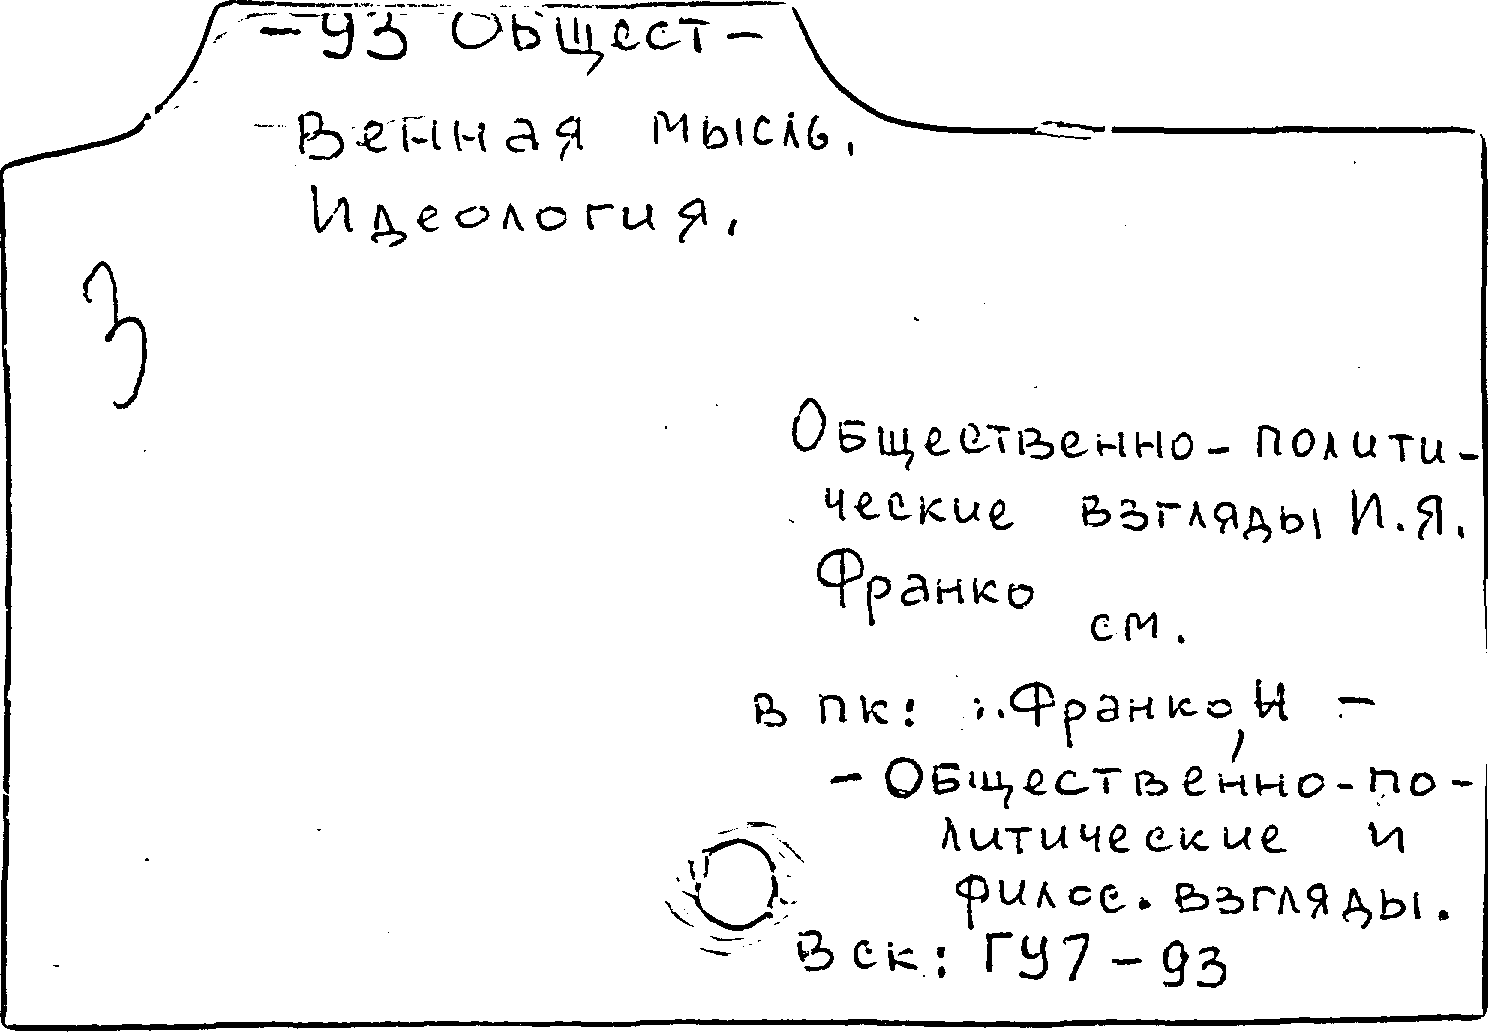 -93 Общест-
-венная мысль.
Идеология.
3
Общественно-полити-
ческие взгляды И.Я.
Франко
см.
в пк: Франко, И -
- Общественно-по-
литические и
филос. взгляды.
В ск: ГУ7-93